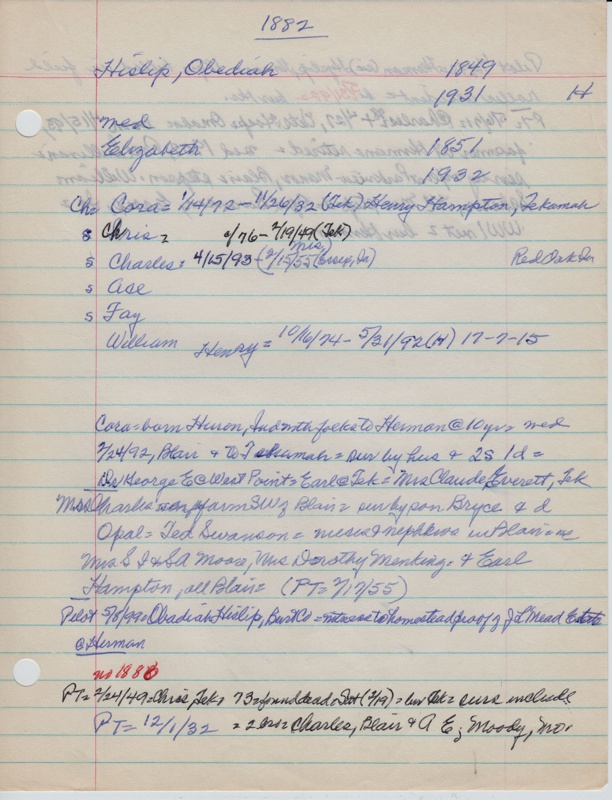 1882
Hislip, Obediah 1849
1931 H
med
Elizabeth 1851
1932
Ch= Cora= 1/14/72 - 11/26/32 (Tek) Henry Hampton, Tekamah
s Chris= 0/76 - 2/19/49 (Tek)
s Charles= 4/15/93 - (2/15/55 (Essex, Ia) Mrs, Red Oak Ia
s Ase
s Fay
William Henry = 10/16/74 - 5/31/92 (H) 17-7-15
Cora = born Huron, Ind with folks to Herman @ 10 yrs = med
2/24/92, Blair & to Tekamah = sur by hus & 2s 1d =
Dr George E @ West Point = Earl @ Tek = Mrs Claude Everett, Tek
Mrs Charles = on farm SW of Blair = sur by son Bryce & d
Opal = Ted Swanson = nieces & nephews in Blair =
Mrs S I & SA Moore, Mrs Dorothy Menking & Earl
Hampton, all Blair = (PT= 2/17/55)
Pilot 5/8/99= Obadiah Hislip, Burt Co = witness to homestead proof of J L Mead Estate
@ Herman
no 1886
PT= 2/24/49= Chris, Tek, 73= found dead= Sat (2/19) = liv Tek= surs include
PT= 12/1/32 = 2 bros= Charles, Blair & A E, Moody, Mo.